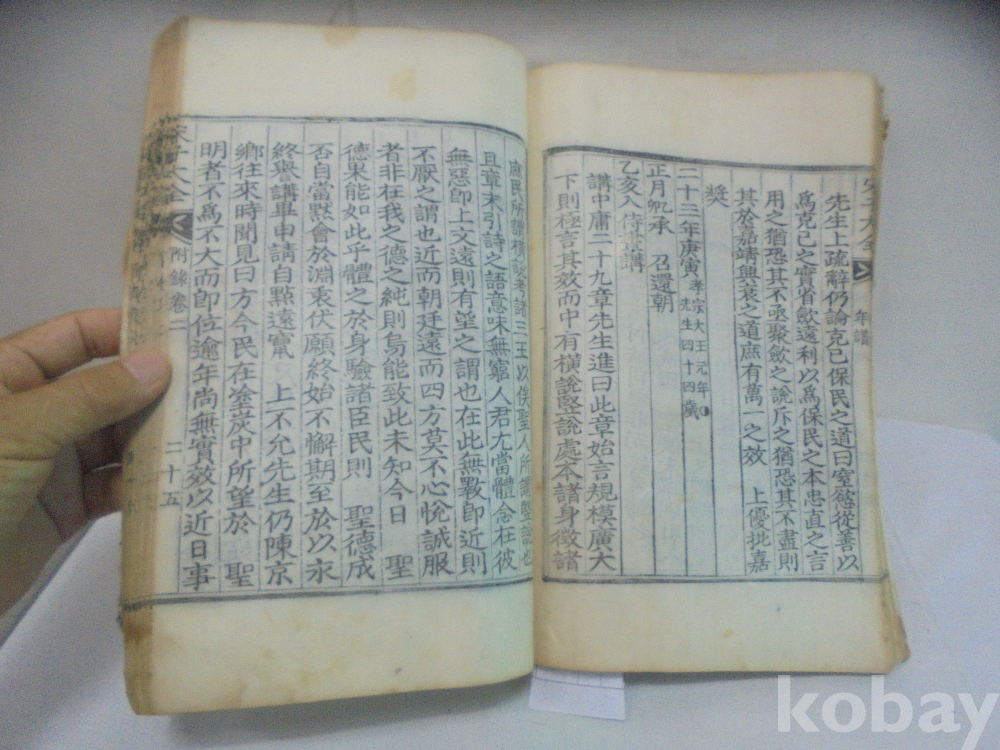 年譜
先生上疏辭仍論克己保民之道曰窒慾從善以
爲克己之實省斂遠利以爲保民之本忠直之言
用之猶恐其不亟聚斂之說斥之猶恐其不盡則
其於嘉靖興衰之道庶有萬一之效 上優批嘉
奬
二十三年庚寅 孝宗大王元年 先生四十四歲
正月 承 召還朝
乙亥入侍 講
講中庸二十九章先生進曰此章始言規模廣大
下則極言其效而中有橫說竪說處本諸身徵諸
庶民所謂橫說考諸三王以俟聖人所謂竪說也
且章末引詩之語意味無窮人君尤當體念在彼
無惡卽上文遠則有望之謂也在此無斁卽近則
不厭之謂也近而朝廷遠而四方莫不心悅誠服
者非在我之德之純則烏能致此未知今日 聖
德果能如此乎體之於身驗諸臣民則 聖德成
否自當默會於淵衷伏願終始不懈期至於以永
終譽講畢申請自點遠竄 上不允先生仍陳京
鄕往來時聞見曰方今民在塗炭中所望於 聖
明者不爲不大而卽位逾年尙無實效以近日事
宋子大全
附錄卷二
二十五
kobay